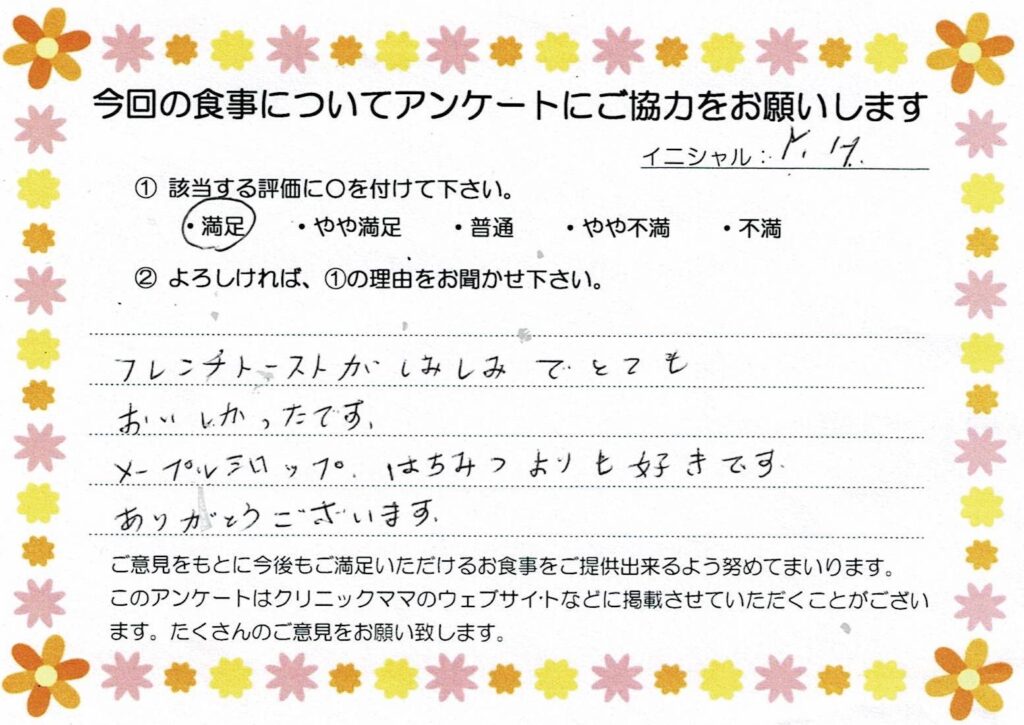 今回の食事についてアンケートにご協力をお願いします
イニシャル: Y. H.
① 該当する評価に○を付けて下さい。
・満足 ・やや満足 ・普通 ・やや不満 ・不満
② よろしければ、①の理由をお聞かせ下さい。
フレンチトーストがしみしみでとても
おいしかったです。
メープルシロップ、はちみつよりも好きです。
ありがとうございます。
ご意見をもとに今後もご満足いただけるお食事をご提供出来るよう努めてまいります。
このアンケートはクリニックママのウェブサイトなどに掲載させていただくことがござい
ます。たくさんのご意見をお願い致します。